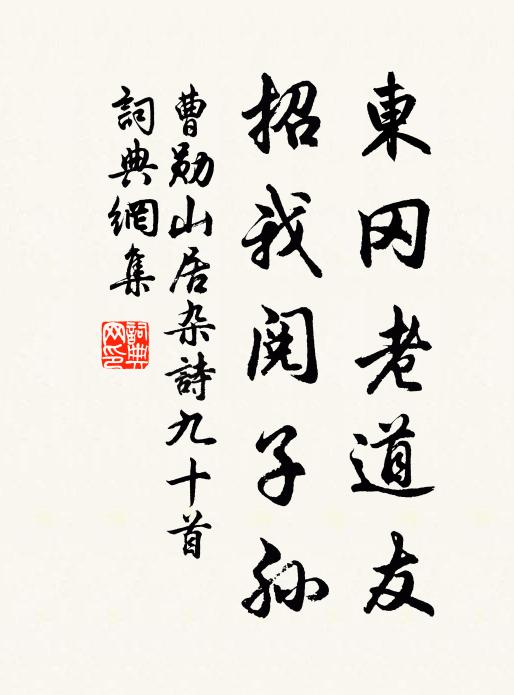 東冈老道友
招我阅子孙
曹勋山居杂詩九十首
詞典網集
詞典網印